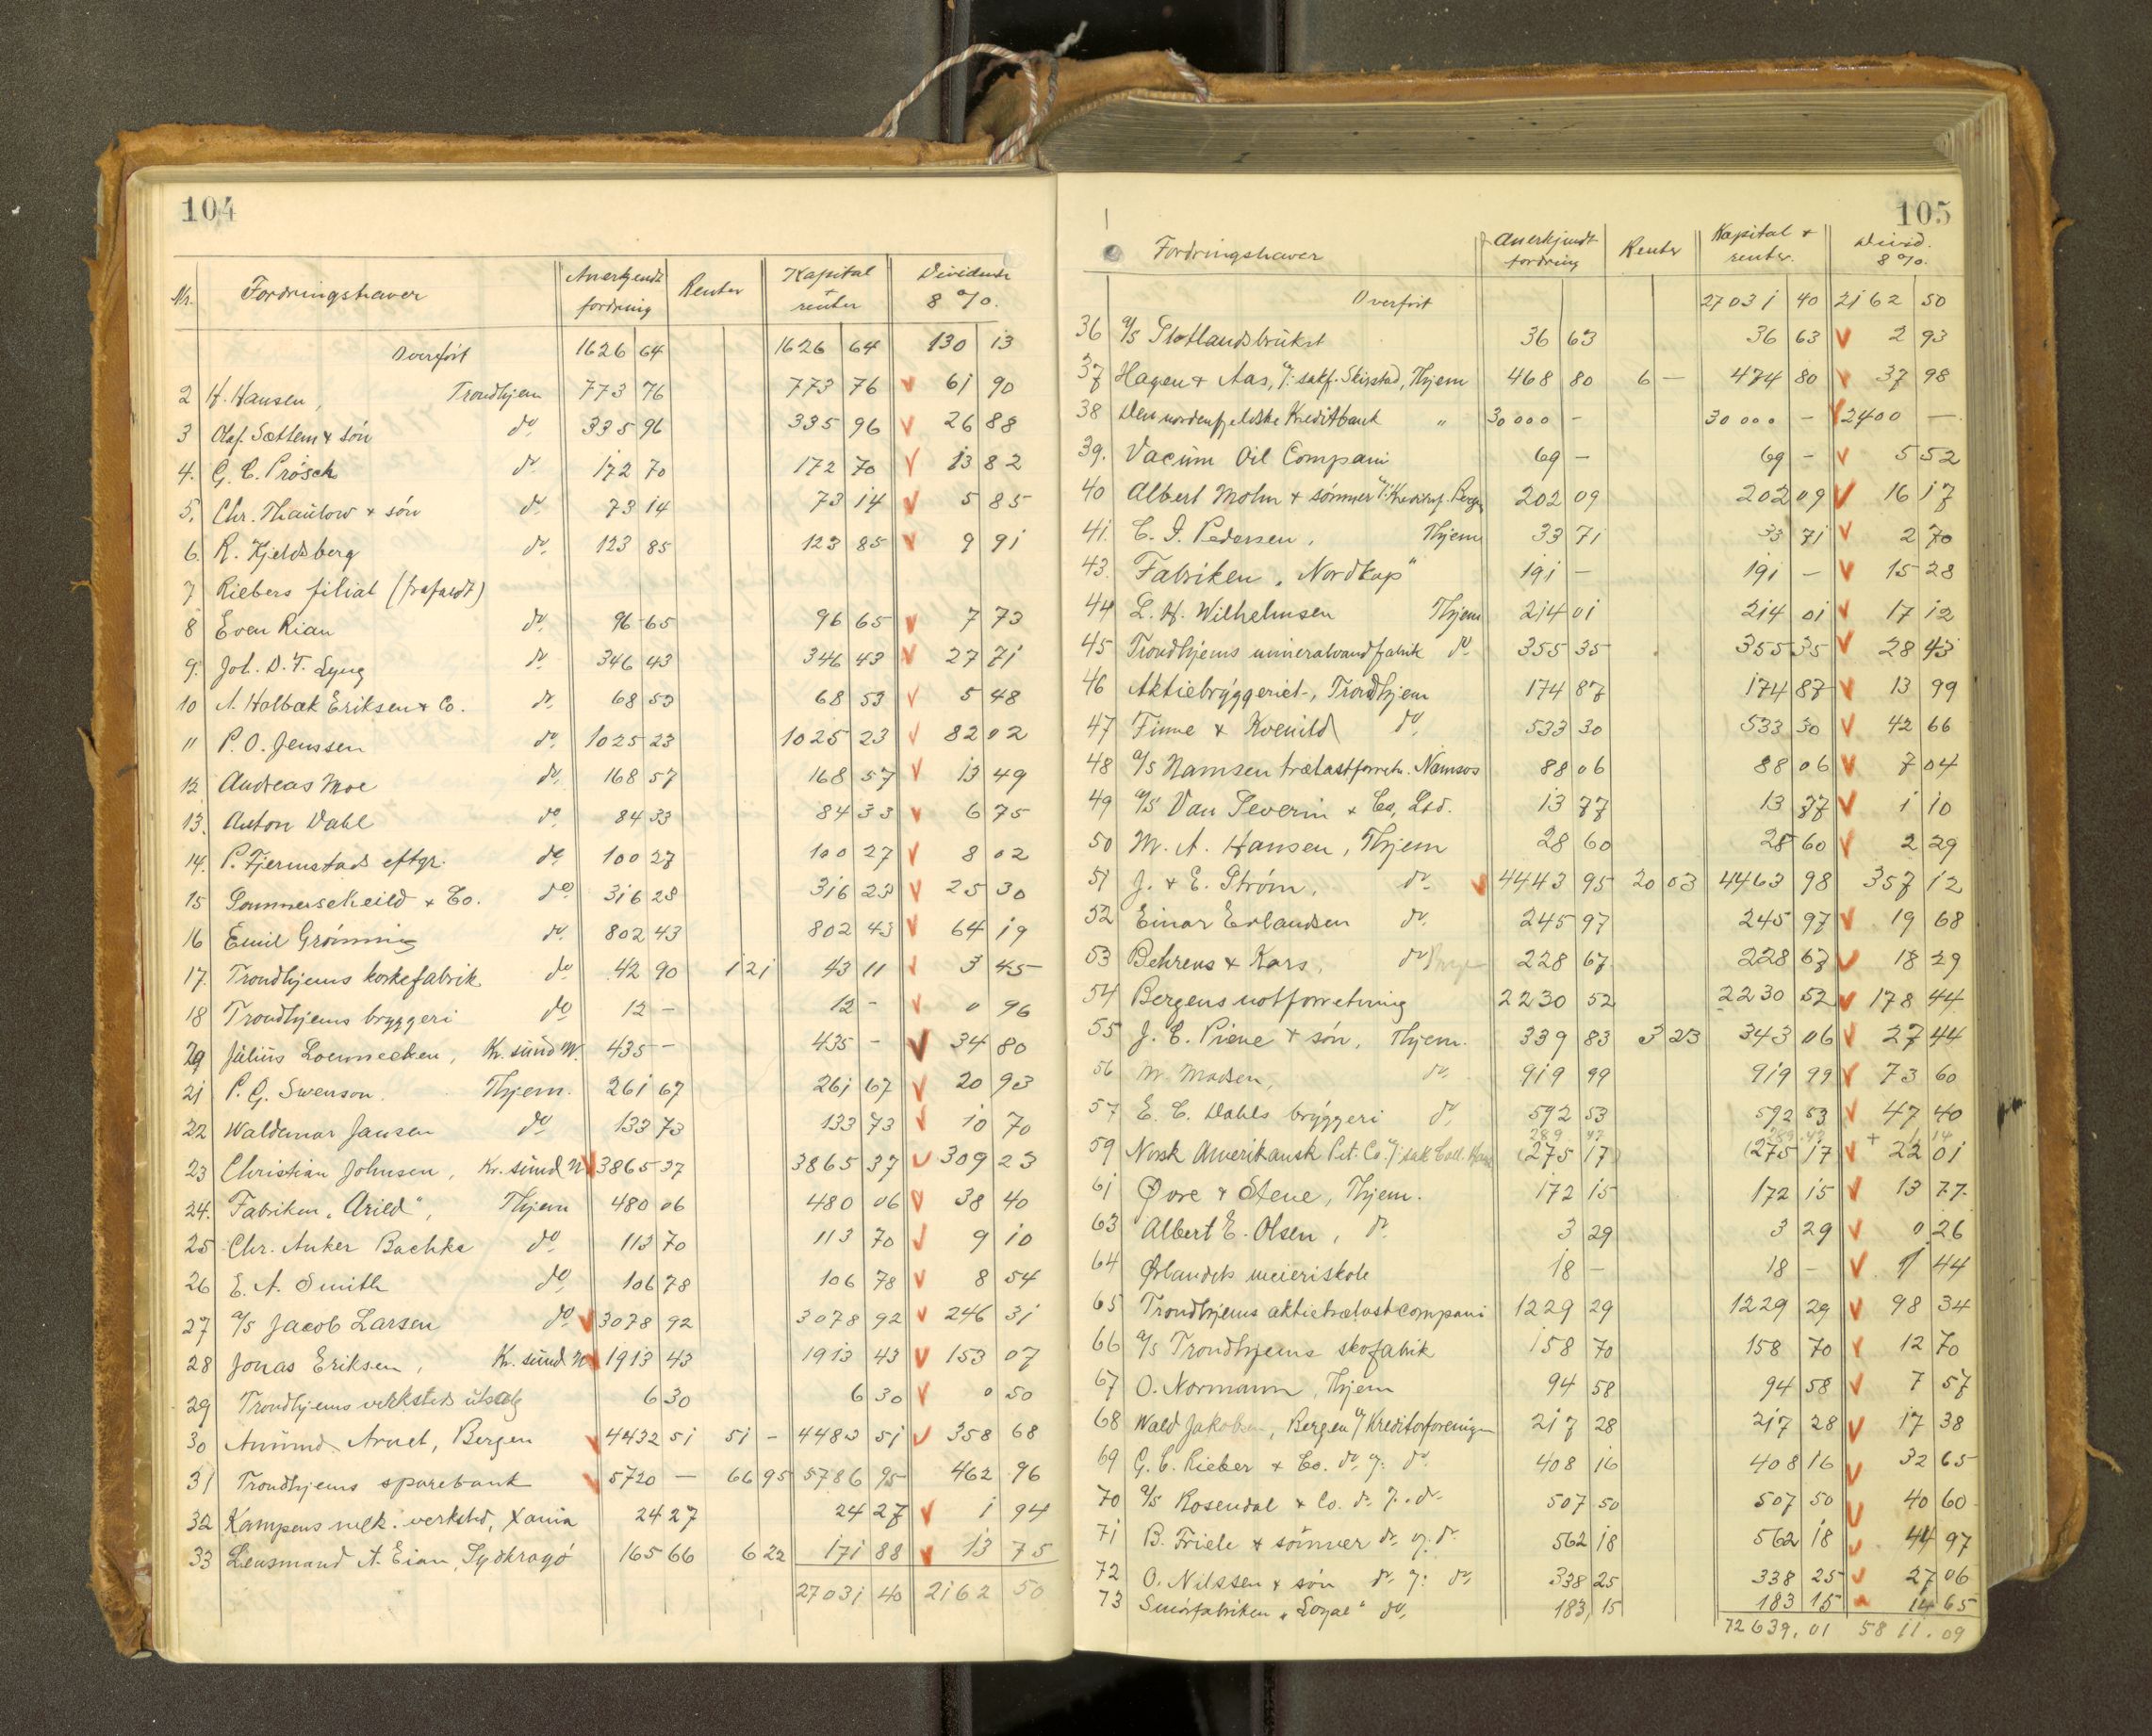 104
Nr. Fordringshaver Anerkjendt fordring Renter Kapital + renter Dividende 8 %.
Overført 1626 64 1626 64 130 13
2 H. Hansen, Trondhjem 773 76 773 76 61 90
3 Olaf Sættem & søn do. 335 96 335 96 26 88
4. G. C. Prösch do. 172 70 172 70 13 82
5. Chr. Thaulow & søn do. 73 14 73 14 5 85
6. R. Kjeldsberg do. 123 85 123 85 9 91
7 Riebers filial (frafaldt)
8 Even Rian do. 96 65 96 65 7 73
9. Joh. D. T. Lyng do. 346 43 346 43 27 71
10 A. Holbæk Eriksen & Co. do. 68 53 68 53 5 48
11 P. O. Jenssen do. 1025 23 1025 23 82 02
12 Andreas Moe do. 168 57 168 57 13 49
13. Anton Dahl do. 84 33 84 33 6 75
14. P. Fjermstads eftgr. do. 100 27 100 27 8 02
15 Sommerscheild & Co. do. 316 28 316 28 25 30
16 Emil Grønning do. 802 43 802 43 64 19
17. Trondhjems korkefabrik do. 42 90 1 21 43 11 3 45
18 Trondhjems bryggeri do. 12 - 12 - 0 96
20 Julius Loennecken, Kr.sund N. 435 - 435 - 34 80
21 P. G. Swenson. Thjem. 261 67 261 67 20 93
22 Waldemar Jansen do. 133 73 133 73 10 70
23 Christian Johnsen, Kr.sund N 3865 37 3865 37 309 23
24. Fabriken "Arild", Thjem 480 06 480 06 38 40
25 Chr. Anker Bachke do. 113 70 113 70 9 10
26 E. A. Smith do. 106 78 106 78 8 54
27 A/S Jacob Larsen do. 3078 92 3078 92 246 31
28 Jonas Eriksen, Kr.sund N 1913 43 1913 43 153 07
29 Trondhjems verksteds utsalg 6 30 6 30 0 50
30 Amund Arnet, Bergen 4432 51 51 - 4483 51 358 68
31 Trondhjems sparebank 5720 - 66 95 5786 95 462 96
32 Kampens mek. verksted, Xania 24 27 24 27 1 94
33 Lensmand A. Eian, Sydkragø 165 66 6 22 171 88 13 75
27031 40 2162 50
105
Fordringshaver Anerkjendt fordring Renter Kapital + renter. Divid. 8 %.
Overført 27031 40 2162 50
36 A/S Slotlandsbruket 36 63 36 63 2 93
37 Hagen & Aas, v/ sakf. Skirstad, Thjem 468 80 6 — 474 80 37 98
38 Den nordenfjeldske Kreditbank " 30000 - 30000 - 2400 —
39. Vacum Oil Compani 69 - 69 - 5 52
40 Albert Mohn & sønner v/ Kreditorf. Bergen 202 09 202 09 16 17
41. C. I. Pedersen, Thjem 33 71 33 71 2 70
43. Fabriken "Nordkap" 191 — 191 — 15 28
44 L. H. Wilhelmsen Thjem 214 01 214 01 17 12
45 Trondhjems mineralvandfabrik do. 355 35 355 35 28 43
46 Aktiebryggeriet, Trondhjem 174 87 174 87 13 99
47 Finne & Kvenild do. 533 30 533 30 42 66
48 A/S Namsen trælastforretn. Namsos 88 06 88 06 7 04
49 A/S Van Severin & Co, Ltd. 13 77 13 77 1 10
50 M. A. Hansen, Thjem 28 60 28 60 2 29
51 J. & E. Strøm, do. 4443 95 20 03 4463 98 357 12
52 Einar Erlandsen do. 245 97 245 97 19 68
53 Behrens & Kars, do. 228 67 228 67 18 29
54 Bergens notforretning 2230 52 2230 52 178 44
55 J. C. Piene & søn, Thjem. 339 83 3 23 343 06 27 44
56 M. Madsen, do. 919 99 919 99 73 60
57 E. C. Dahls bryggeri do. 592 53 592 53 47 40
289 47 289.47 + 1 14
59 Norsk Amerikansk Pet. Co. v/ sakf. (275 17) (275 17 22 01
61 Øvre & Stene, Thjem. 172 15 172 15 13 77.
63 Albert E. Olsen, do. 3 29 3 29 0 26
64 Ørlandets meieriskole 18 - 18 - 1 44
65 Trondhjems aktietrælastcompani 1229 29 1229 29 98 34
66 A/S Trondhjems skofabrik 158 70 158 70 12 70
67 O. Normann, Thjem 94 58 94 58 7 57
68 Wald Jakobsen, Bergen v/ Kreditorforeningen 217 28 217 28 17 38
69 G. C. Rieber & Co. do. v/ do. 408 16 408 16 32 65
70 A/S Rosendal & Co. do. v/ do. 507 50 507 50 40 60
71 B. Friele & sønner do. v/ do. 562 18 562 18 44 97
72 O. Nilssen & søn do. v/ do. 338 25 338 25 27 06
73 Smørfabriken "Loyal" do. 183 15 183 15 14 65
72639.01 5811.09